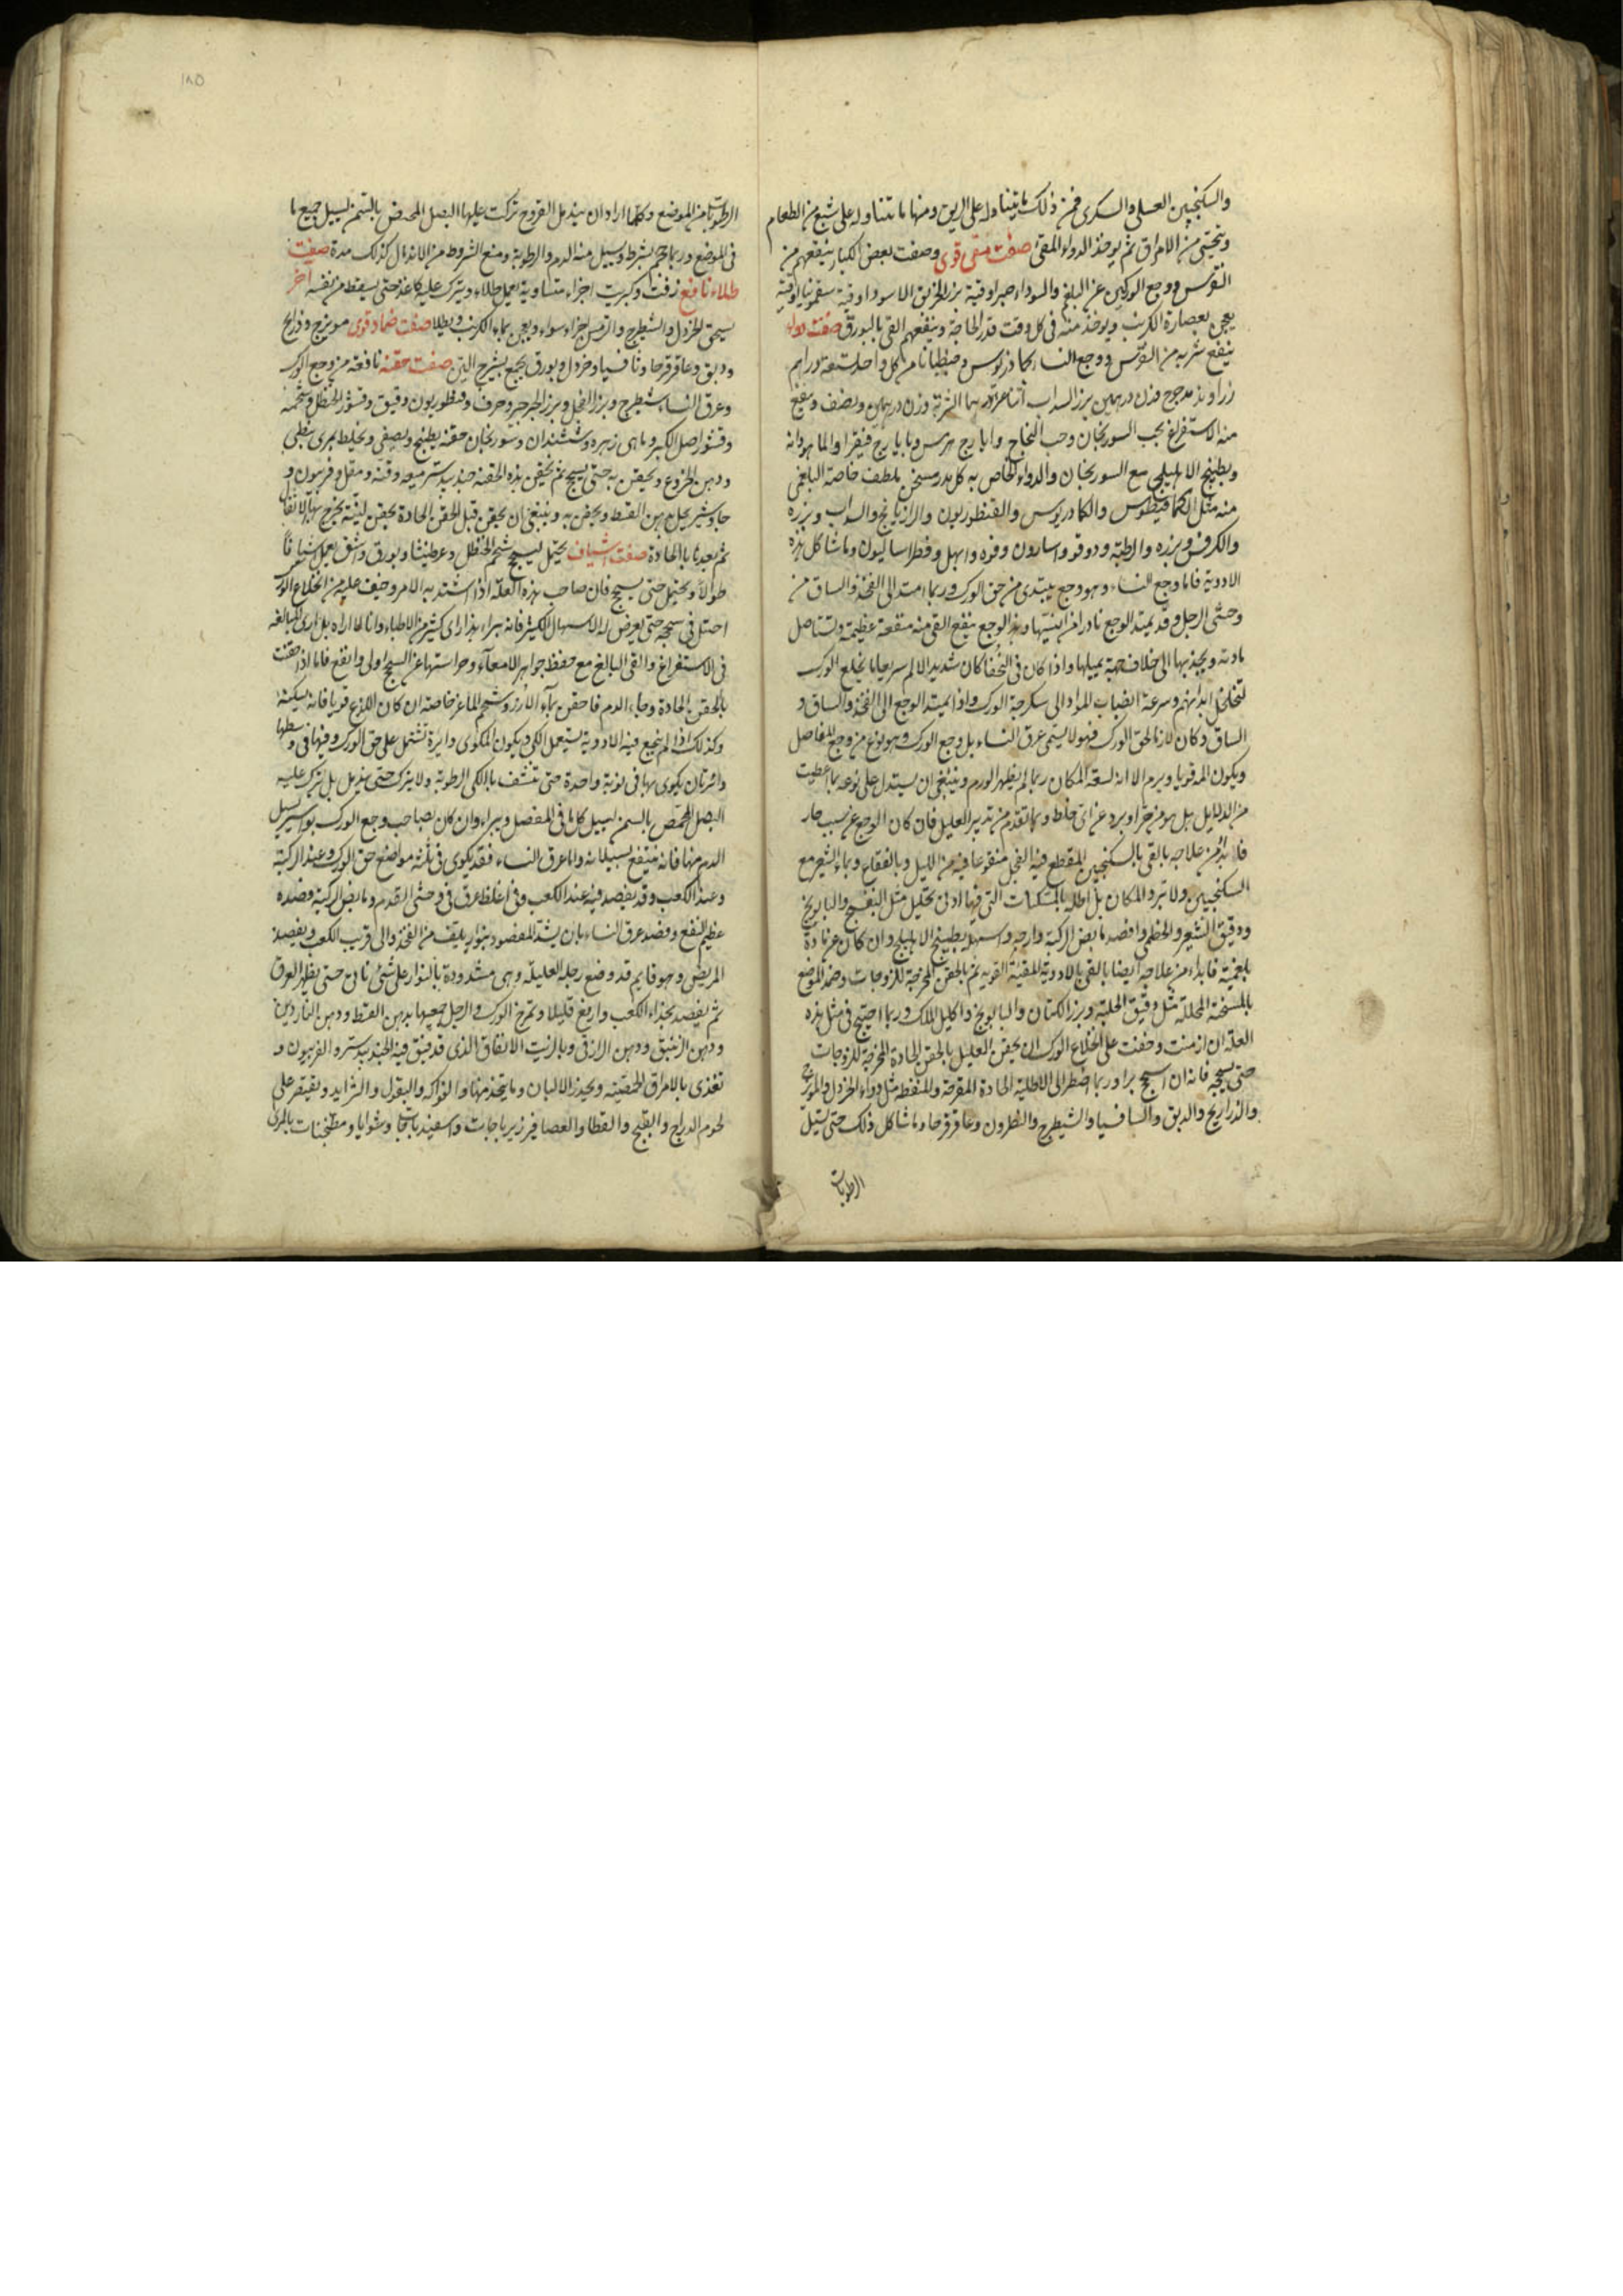 والسكنجبين العسلى والسكرى فمن ذلك ما يتناوله على الريق ومنها ما يتناوله على شبع من الطعام
وتحتى من الامراق ثم يوخذ الدواء المقى صفت مقى قوى وصفت بعض الكبار ينفعهم من
النقرس ووجع الوركين عن البلغم والسوداء صبر اوقية بزر الخربق الاسود اوقية سقمونيا اوقية
يعجن بعصارة الكرنب ويوخذ منه فى كل وقت قدر الحاجة وينفعهم القى بالبورق صفت دواء
ينفع شربه من النقرس ووجع النساء كماذريوس وجنطيانا من كل واحد تسعة دراهم
زراوند مدحرج وزن درهمين بزر السداب الشربة وزن درهمين ونصف وينفع
منه الاستفراغ بحب السورنجان وحب النجاح وايارج هرمس وبايارج فيقرا والماهودانه
وبطبيخ الاهليلج مع السورنجان والدواء الخاص به كل مدر مسخن ملطف خاصة البلغمى
منه مثل الكمافيطوس والكمادريوس والقنطوريون والرازيانج والسداب وبزره
والكرفس وبزره والرطبة ودوقو واسارون وفوه وابهل وفطراساليون وما شاكل هذه
الادوية فاما وجع النساء وهو وجع يبتدى من حق الورك وربما امتد الى الفخذ والساق من
وحشى الرجل وقد يمتد الوجع نادرا من انسيها وهذا الوجع ينفع القى منه منفعة عظيمة ولتتاصل
مادته ويجذبها الى خلاف جهة ميلها واذا كان فى النحفا كان شديد الالم سريعا ما يخلع الورك
لتخلخل ابدانهم وسرعة انصباب المواد الى سكرجة الورك واذا لم يمتد الوجع الى الفخذ والساق و
الساق وكان لازما لحق الورك فهو لا يسمى عرق النساء بل وجع الورك وهو نوع من وجع المفاصل
ويكون المدقويا ويرم الا انه لسعة المكان ربما لم يظهر الورم وينبغى ان يستدل على نوعه بما اعطيت
من الدلايل هل هو من حر او برد وعن اى خلط وبما تقدم من تدبير العليل فان كان الوجع عن سبب حار
فابدا من علاجه بالقى بالسكنجبين المقطع فيه الفجل منقوعا فيه من الليل وبالفقاع وبماء الشعير مع
السكنجبين ولا تبرد المكان بل اطله بالمسكنات التى فيها ادنى تحليل مثل البنفسج والبابونج
ودقيق الشعير والخطمى وافصد مابض الركبة وارحه واسهل بطبيخ الاهليلج وان كان عن مادة
بلغمية فابداء من علاجه ايضا بالقى بالادوية المقيئة القويه ثم بالحقن المخرجة للزوجات وضمد الموضع
بالمسخنة المحللة مثل دقيق الحلبة وبزر الكتان والبابونج واكليل الملك وربما احتيج فى مثل هذه
العلة ان ازمنت وخفت على انخلاع الورك ان يحقن العليل بالحقن الحادة المخرجة للزوجات
حتى يسحجه فانه ان اسحج برا وربما اضطر الى الاطلية الحادة المقرحة والمنفطة مثل دواء الخردل والمويزج
والذراريح والدبق والسافسيا والشيطرج والنطرون وعاقرقرحا وما شاكل ذلك حتى يسيل
الرطوبات
١٨٥
الرطوبات من الموضع وكلما اراد ان يندمل القروح تركت عليها البصل المحمض بالسمن ليسيل جميع ما
فى الموضع وربما حجم بشرط ويسيل منه الدم والرطوبة ومنع الشروط من الاندمال كذلك مدة صفت
طلاء نافع زفت وكبريت اجزاء متساوية يعمل طلاء ويترك عليه كاغذ حتى يسقط من نفسه آخر
يسحق الخردل والشيطرج والترمس اجزاء سواء ويعجن بماء الكرنب ويطلا صفت ضماد قوى مويزج وذراريح
ودبق وعاقرقرحا وثافسيا وخردل وبورق يجمع بشيرج التين صفت حقنه نافعة من وجع الورك
وعرق النساء شيطرج وبزر الفجل وبزر الجرجير وحرف وقنطوريون دقيق وقشور الحنظل وشحمه
وقشور اصل الكبر وماهى زهره وششندان وسورنجان حقنة يطبخ ويصفى ويخلط بمرى نبطى
ودهن الخروع ويحقن به حتى يسحج ثم يحقن بهذه الحقنه جندبيدستر ميعه وقنه ومقل وفربيون و
جاوشير يحل بدهن القسط ويحقن به وينبغى ان يحقن قبل الحقن الحادة بحقن لينة يخرج بها الاثفال
ثم بعدها بالحادة صفت شياف يحتمل ليسحج شحم الحنظل وعرطنيثا وبورق واشق يعمل شيافا
طوالا ويحتمل حتى يسحج فان صاحب هذه العلة اذا اشتد به الامر وخيف عليه من انخلاع الورك
احتل فى سحجه حتى يعرض له الاسهال الكثير فانه يبراء هذا راى كثير من الاطباء وانا لا اراه بل ارى المبالغه
فى الاستفراغ والقى البالغ مع حفظ جواهر الامعآء وحراستها عن السحج اولى وانفع فاما اذا حقنت
بالحقن الحادة وجاء الدم فاحقن بمآء الارز وشحم الماعز خاصة ان كان اللذع قويا فانه يسكنه
وكذلك اذا لم ينجع فيه الادوية يستعمل الكى ويكون المكوى دايرة تشتمل على حق الورك وفيها فى وسطها
دائرتان يكوى بها فى نوبة واحدة حتى تنشف بالكى الرطوبة ولا يترك حتى يندمل بل يترك عليه
البصل المحمص بالسمن ليسيل كل ما فى المفصل ويبراء وان كان بصاحب وجع الورك بواسير يسيل
الدم منها فانه ينتفع بسيلانه واما عرق النساء فقد يكوى فى ثلثة مواضع حق الورك وعند الركبة
وعند الكعب وقد يفصد فيه عند الكعب وفى اغلظ عرق فى وحشى القدم ومابض الركبة وفصده
عظيم النفع وفصد عرق النساء بان يشد المفصود بنوار يلف من الفخذ والى قرب الكعب ويفصد
المريض وهو قايم قد وضع رجله العليلة وهى مشدودة بالنوار على شئ ناتئ حتى يظهر العرق
ثم يفصد بحذاء الكعب وارفع قليلا وتمرخ الورك والرجل جميعها بدهن القسط ودهن الناردين
ودهن الزنبق ودهن الرازقى وبالزيت الانفاق الذى قد فتق فيه الجندبيدستر والفربيون و
تغذى بالامراق الحمصيه ويحذر الالبان وما يتخذ منها والفواكه والبقول والثرايد ويقتصر على
لحوم الدراج والقبج والقطا والعصافير زيرباجات واسفيدباجات وشوايا ومطجنات بالمرى